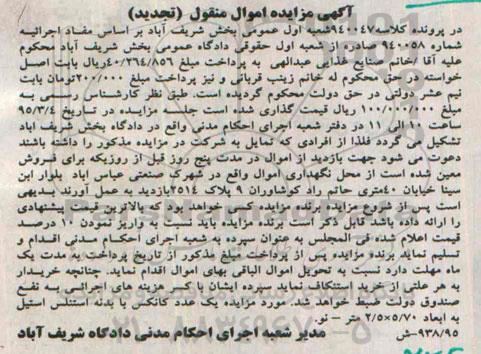 آگهی مزایده اموال منقول (تجدید)
در پرونده کلاسه ۹۴۰۰۴۷شعبه اول عمومی بخش شریف آباد بر اساس مفاد اجرائیه
شماره ۹۴۰۰۵۸ صادره از شعبه اول حقوقی دادگاه عمومی بخش شریف آباد محکوم
علیه آقا /خانم صنایع غذایی عبدالهی به پرداخت مبلغ ۴۰/۲۶۴/۸۵۶ریال بابت اصل
خواسته در حق محکوم له خانم زینب قربانی و نیز پرداخت مبلغ ۲۰۰/۰۰۰تومان بابت
نیم عشر دولتی در حق دولت محکوم گردیده است. طبق نظر کارشناس رسمی به
مبلغ ۱۰۰/۰۰۰/۰۰۰ ریال قیمت گذاری شده است جلسه مزایده در تاریخ ۹۵/۳/۴
ساعت ۱۰ الی ۱۱ در دفتر شعبه اجرای احکام مدنی واقع در دادگاه بخش شریف اباد
تشکیل می گردد فلذا از افرادی که تمایل به شرکت در مزایده مذکور را داشته باشند
دعوت می شود جهت بازدید از اموال در مدت پنج روز قبل از روزیکه برای فروش
معین شده است از محل نگهداری اموال واقع در شهرک صنعتی عباس اباد بلوار ابن
سینا خیابان ۴۰متری حاتم راد کوشاوران ۹ پلاک ۲۰۱۴بازدید به عمل آورند بدیهی
است پس از شروع مزایده برنده مزایده کسی خواهد بود که بالاترین قیمت پیشنهادی
را ارائه داده باشد قابل ذکر است برنده مزایده باید نسبت به واریز نمودن ۱۰ درصد
قیمت اعلام شده فی المجلس به عنوان سپرده به شعبه اجرای احکام مدنی اقدام و
تسلیم نماید برنده مزایده پس از پرداخت مبلغ مذکور از تاریخ پرداخت به مدت یک
ماه مهلت دارد نسبت به تحویل اموال الباقی بهای اموال اقدام نماید. چنانچه خریدار
به هر علتی از خرید استنکاف نماید سپرده ایشان با کسر هزینه های اجرائی به نفع
صندوق دولت ضبط خواهد شد. مورد مزایده یک عدد کانکس با بدنه استنلس استیل
به ابعاد ۲/۵×۵/۷۰ متر – نو.
۹۳۸/۹۵-ش مدیر شعبه اجرای احکام مدنی دادگاه شریف آباد